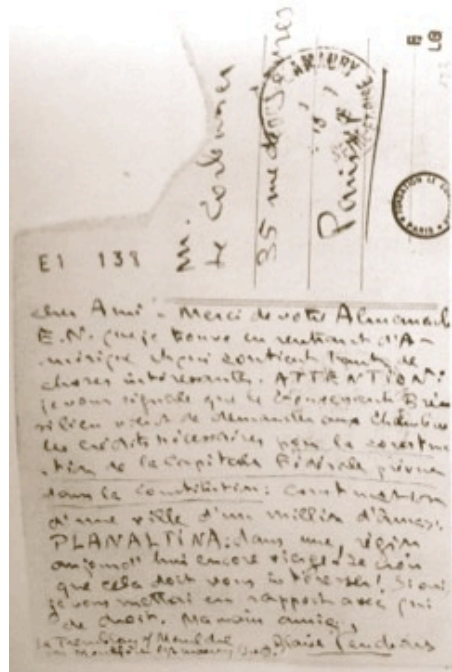 E1 138
M.
Le Corbusier
35 rue de Sèvres
Paris
FONDATION LE CORBUSIER
PARIS
Cher Ami - Merci de votre Almanach
E.N. que je trouve en rentrant d'A-
mérique et qui contient tant de
choses intéressantes. ATTENTION:
je vous signale que le Gouvernement Bré-
silien vient de demander aux Chambres
les crédits nécessaires pour la construc
-tion de la Capitale Fédérale prévue
dans la constitution: construction
d'une ville d'un million d'âmes:
PLANALTINA: dans une région
aujourd'hui encore vierge! Je crois
que cela doit vous intéresser! Si oui,
je vous mettrai en rapport avec qui
de droit. Ma main amie,
Blaise Cendrars
Le Tremblay s/ Mauldre